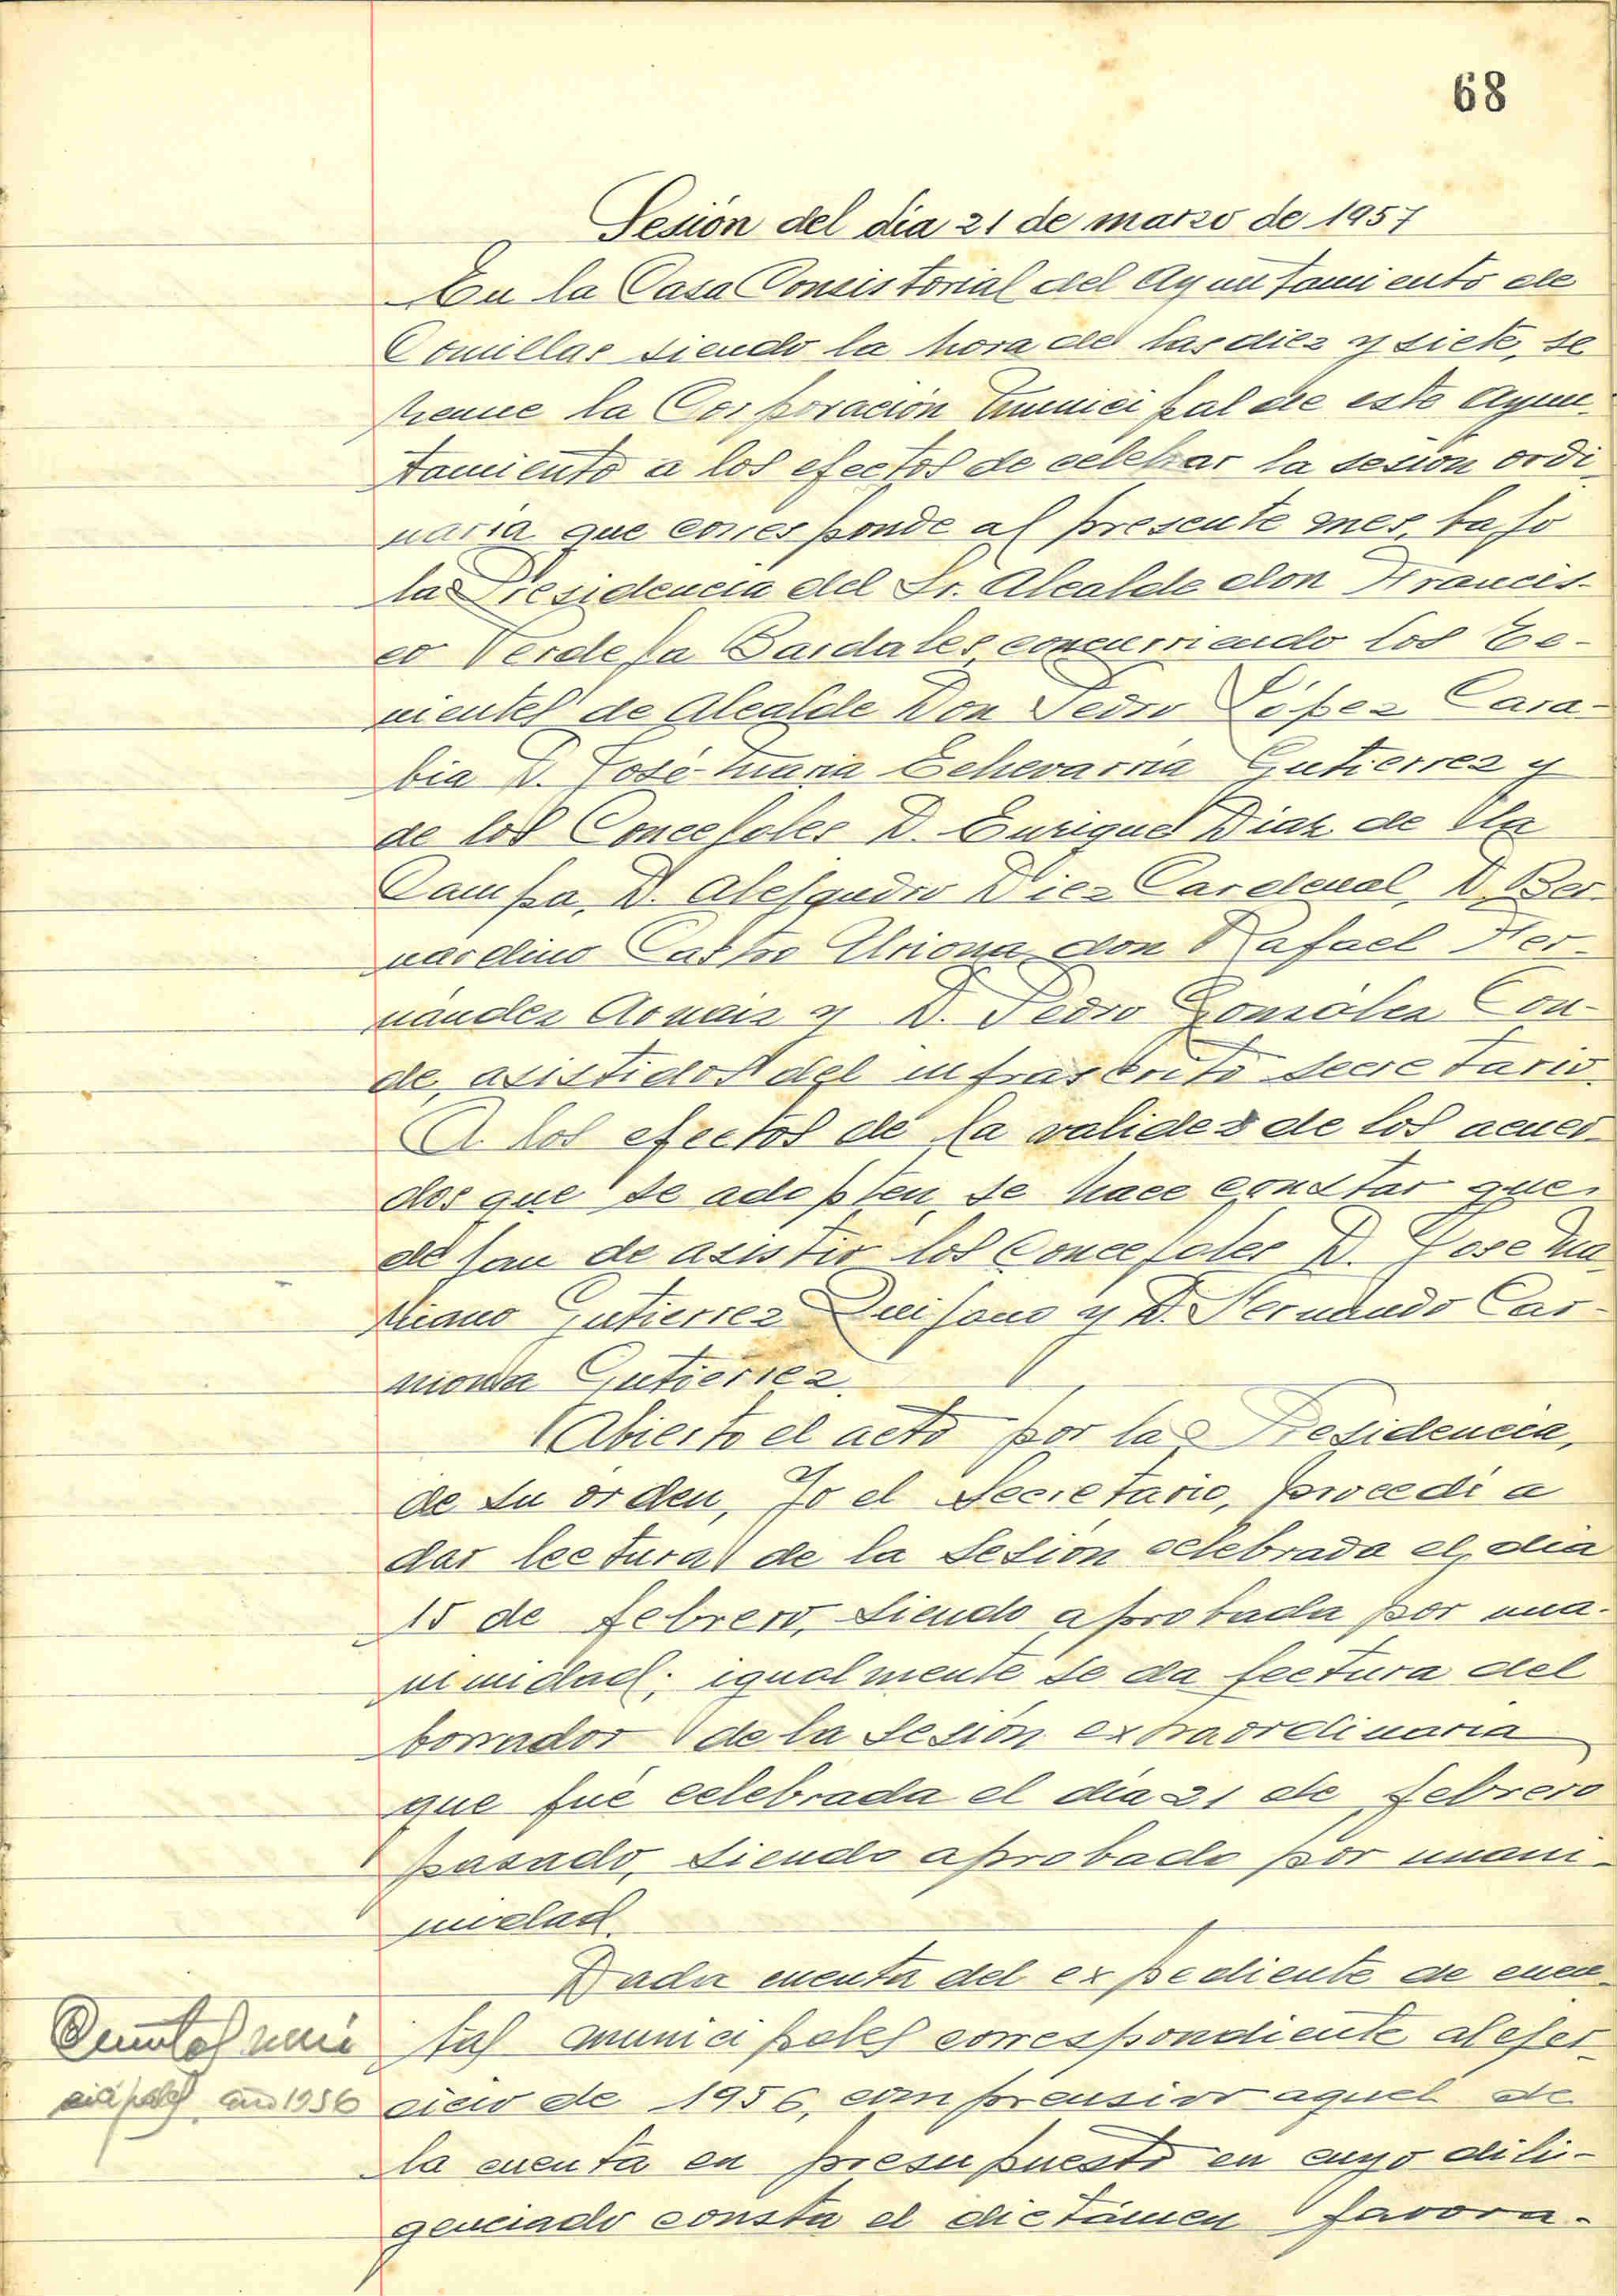 68
Sesión del dia 21 de marzo de 1957
En la Casa Consistorial del Ayuntamiento de
Comillas siendo la hora de las diez y siete, se
reune la Corporación municipal de este Ayun-
tamiento a los efectos de celebrar la sesión ordi
naria que corresponde al presente mes, bajo
la Presidencia del Sr. Alcalde don Francis-
co Verdeja Bardales, concurriendo los Te-
nientes de Alcalde Don Pedro López Cara-
bia D. José-Maria Echevarria Gutierrez y
de los Concejales D. Enrique Diaz de la
Campa, D. Alejandro Diez Cardenal, D. Ber-
nardino Castro Uriona, don Rafael Her-
nández Arnaiz y D. Pedro González Con-
de, asistidos del infrascrito Secretario.
A los efectos de la validez de los acuer-
dos que se adopten, se hace constar que
dejan de asistir los Concejales D. Jose Ma
riano Gutierrez Quijano y D. Fernando Car-
mona Gutierrez.
Abierto el acto por la Presidencia,
de su orden, Yo el Secretario, procedi a
dar lectura de la Sesión celebrada el dia
15 de febrero, siendo aprobada por una-
nimidad; igualmente se da lectura del
borrador de la Sesión extraordinaria
que fué celebrada el dia 21 de febrero
pasado, siendo aprobado por unani-
midad.
Dada cuenta del expediente de cuen-
Cuentas muni
tas municipales correspondiente al ejer-
cipales, año 1956
cicio de 1956, comprensivo aquel de
la cuenta en presupuesto en cuyo dili-
genciado consta el dictámen favora-